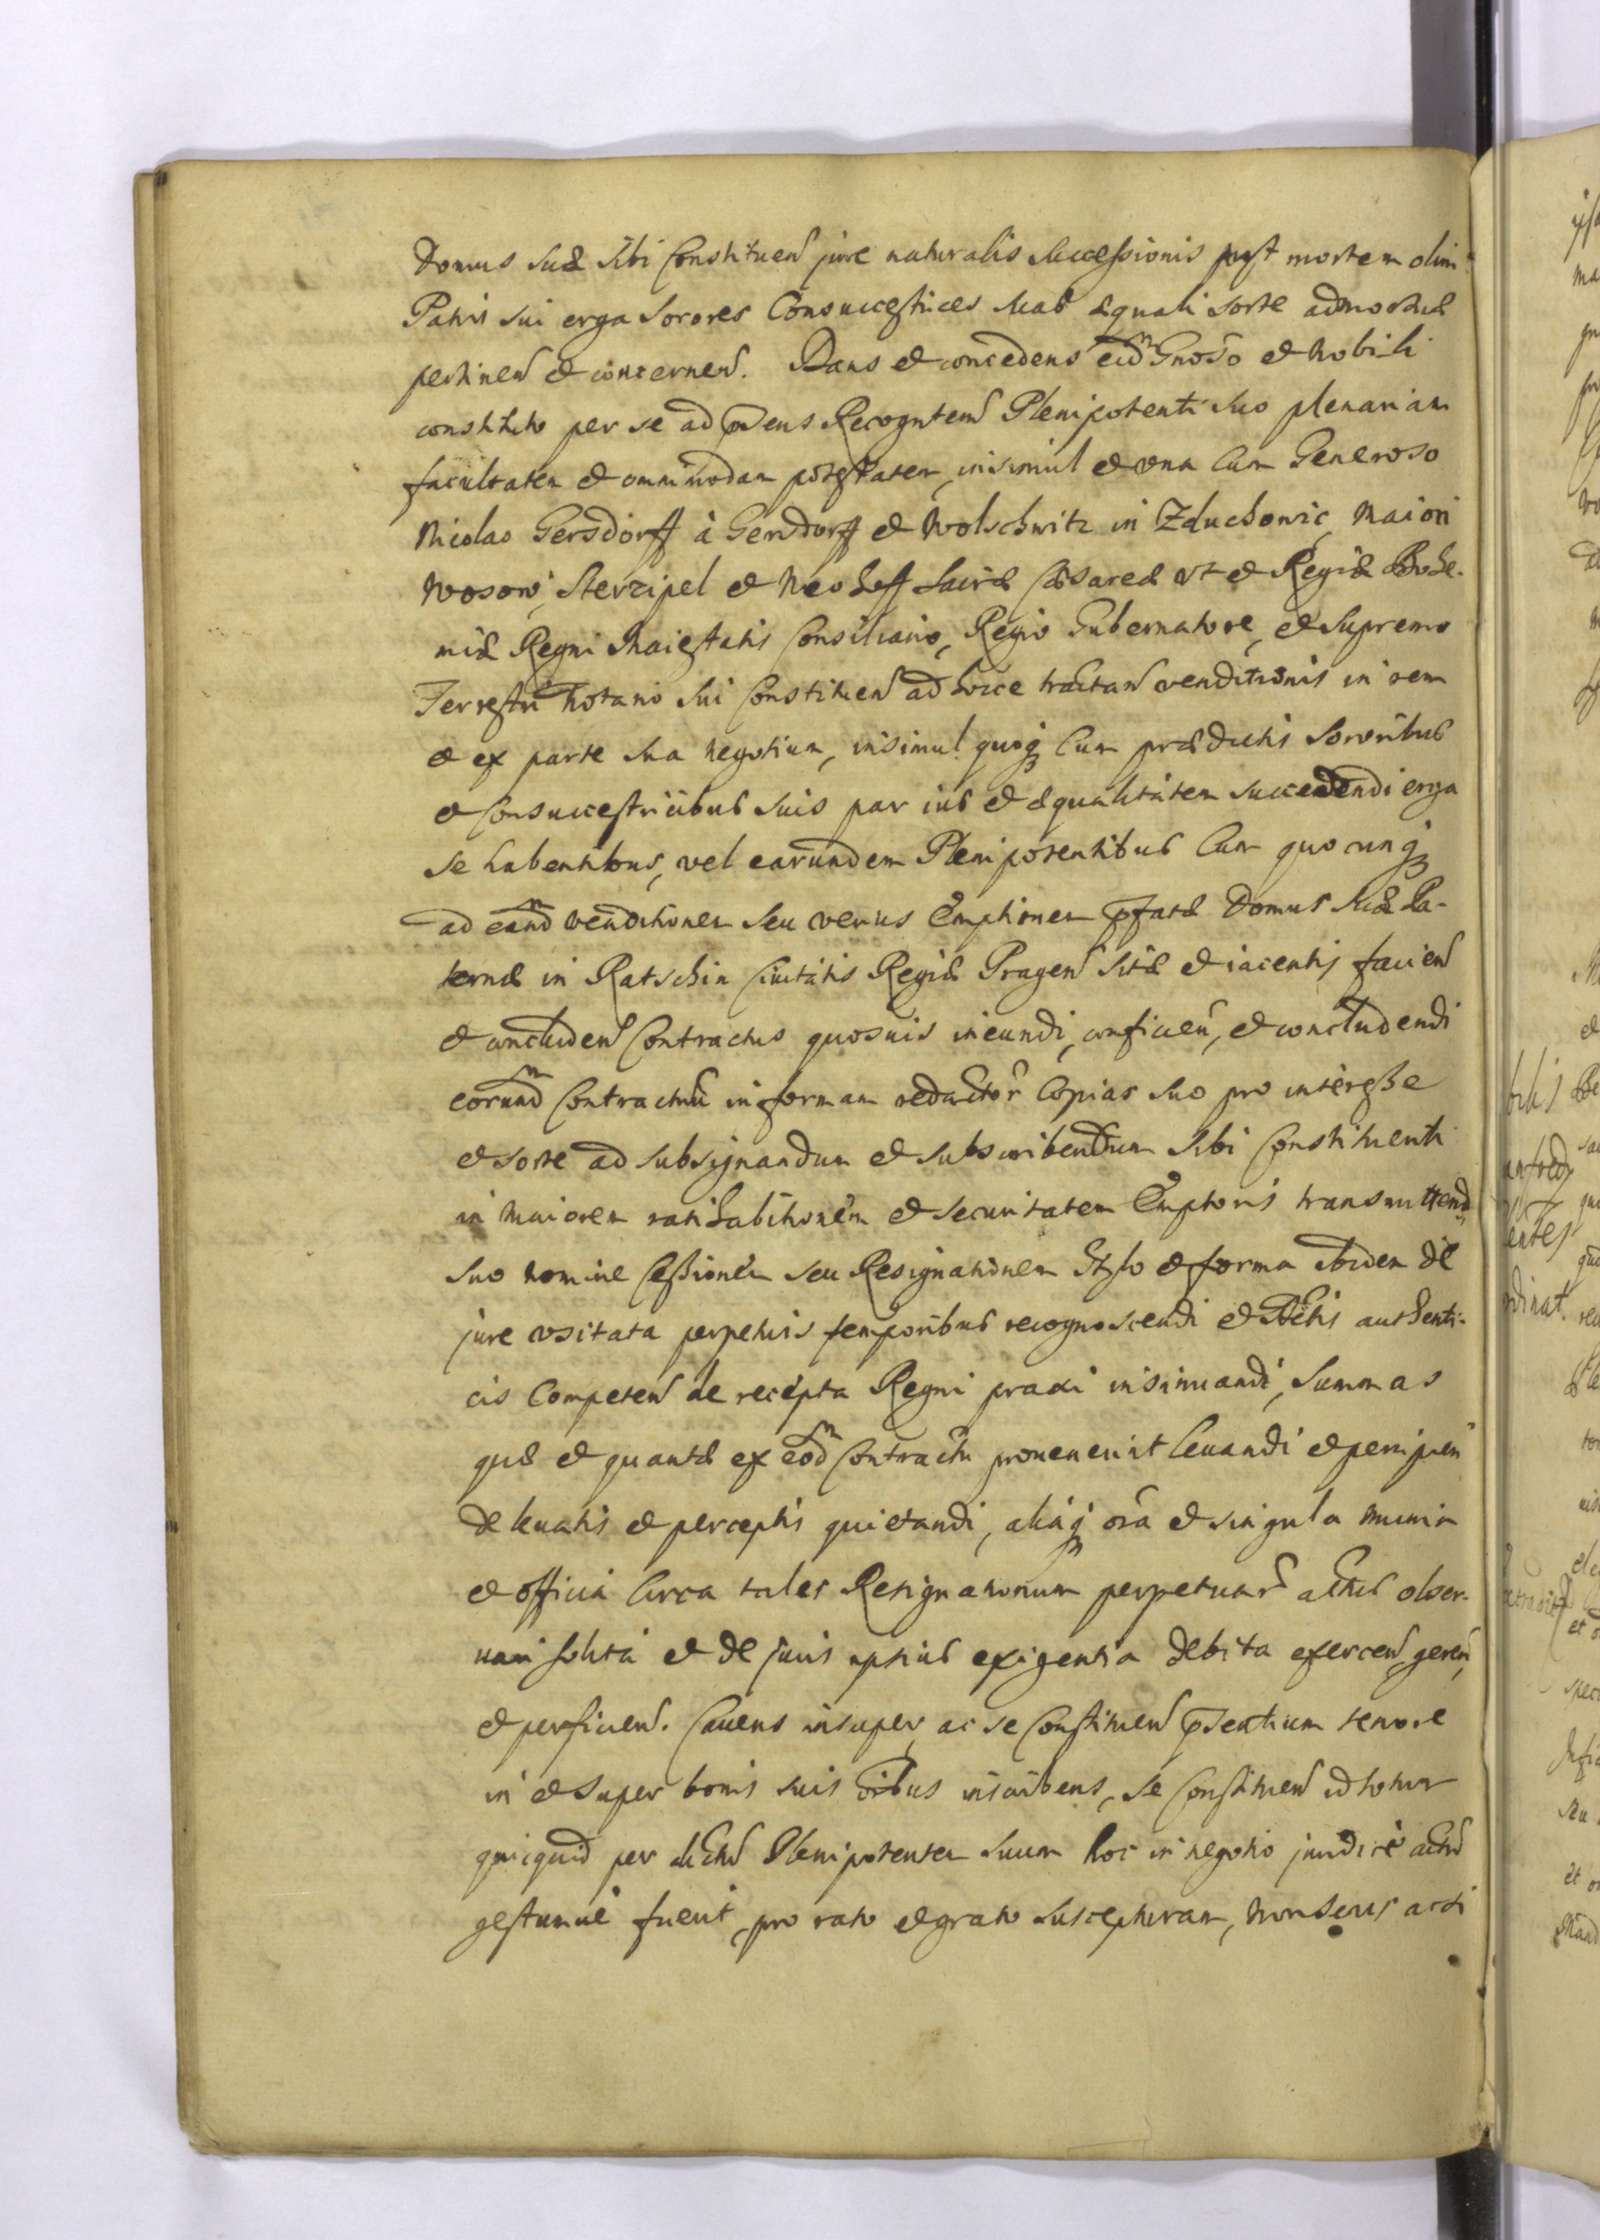 Domus suæ sibi Constituen jure naturalis successionis post mortem olim
Patris sui erga Sorores Consuccestrices suas æquali sorte admortuæ
pertinen et concernen. Dans et concedens eidm Gnoso et Nobili
constituto per se ad pñens Recognten Plenipotenti suo plenariam
facultatem et omnimodam potestatem, insimul et vna Cum Generoso
Nicolao Gersdorff à Gersdorff et Wolschwitz in Zduchowic, Maiori
Wosow, Sterzipel et Neohoff Sacræ Cæsareæ vt et Regiæ Bohe-
miæ Regni Maiestatis Consiliario, Regio Gubernatore, et Supremo
Terrestri Notario sui Constituen ad hocce tractan venditionis in rem
et ex parte sua negotium, insimul quoq Cum prædictis Sororibus
et Consuccestricibus suis par ius et æqualitatem succedendi erga
se habentibus, vel earundem Plenipotentibus Cum quocunq
ad eandm venditionem seu verius Emptionem pfatæ Domus suæ Pa-
ternæ in Ratschin Ciuitatis Regiæ Pragen sitæ et iacentis facien
et concluden Contractus quosuis ineundi, conficien, et concludendi
eorundm Contractuũ in formam redactor Copias suo pro interesse
et sorte ad subsignandum et subscribendum sibi Constituenti
in maiorem ratihabitionem et securitatem Emptoris transmittend,
suo nomine Cessionem seu Resignationem Stylo et forma ibidem de
jure vsitata perpetuis temporibus recognoscendi et Actis authenti-
cis Competen de recepta Regni praxi insinuandi, Summas
quæ et quantæ ex eodm Contractu prouenerint leuandi et percipien
de leuatis et perceptis quietandi, aliaq oia et singula munia
et officia Circa tales Resignationum perpetuar actus obser-
uari solita et de juris ipsius exigentia debita exercen, geren,
et perficien. Cauens insuper, ac se Constituen psentium tenore
in et super bonis suis oibus inscribens, se Constituen id totum
quicquid per dictũ Plenipotentem suum hoc in negotio juridicè actũ
gestumuè fuerit, pro rato et grato suscepturam,